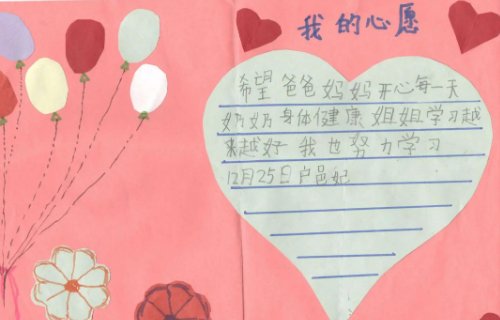 我的心愿
希望爸爸妈妈开心每一天
奶奶身体健康姐姐学习越
来越好我也努力学习
12月25日卢邑妃